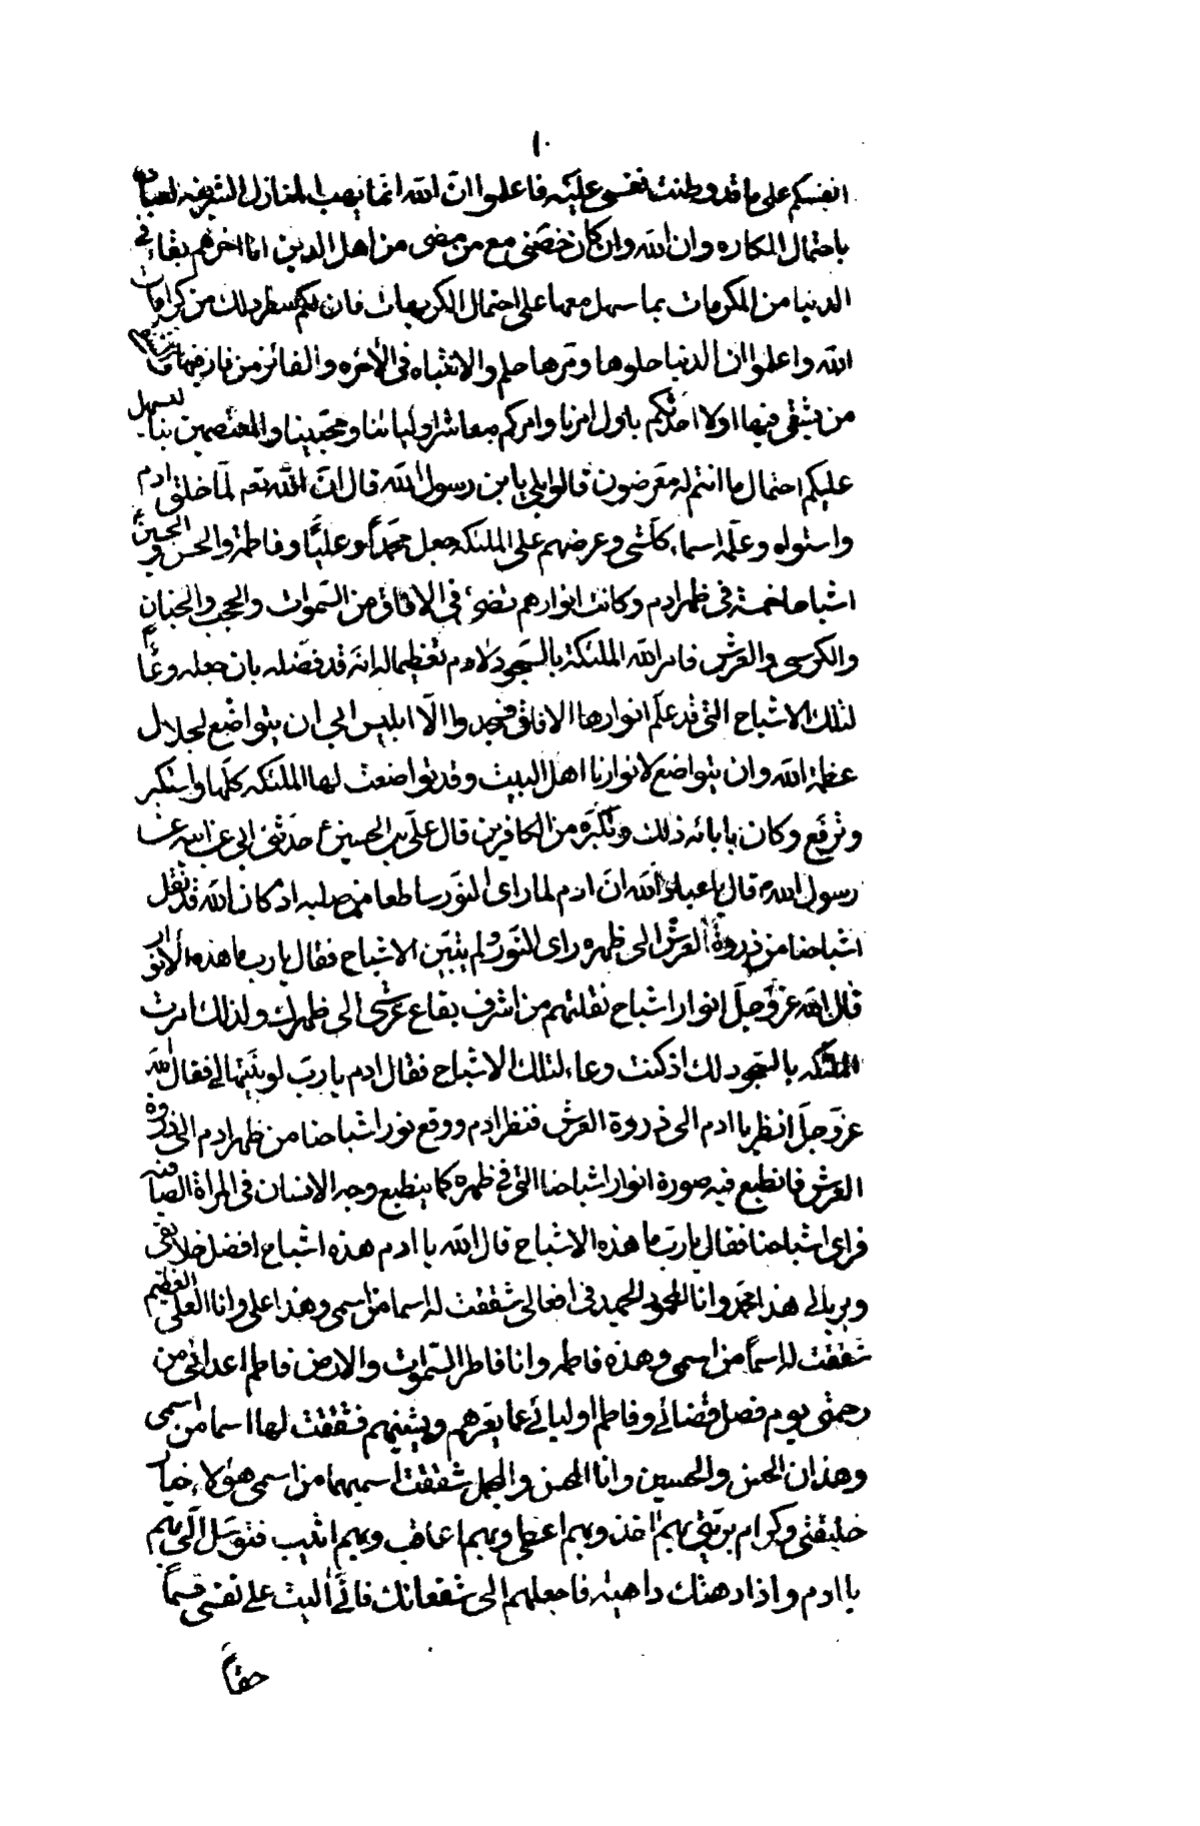 ١٠
انفسكم على ما قد وطنت نفسي عليه فاعلموا انّ الله انما يهب المنازل الشريفه لعباده
باحتمال المكاره وان الله وان كان خصّني مع من مضى من اهل الدين انا اخرهم بقاء في
الدنيا من المكرمات بما سهل معها على احتمال الكريهات فان لكم شطر ذلك من كرامات
الله واعلموا ان الدنيا حلوها ومرّها حلم والانتباه في الأخره والفائز من فاز فيها والشقي
من يشقى فيها اولا احدثكم باول امرنا وامركم معاشر اوليائنا ومحبّينا والمعتصمين بنا ليسهل
عليكم احتمال ما انتم له معرضون قالوا بلى يا بن رسول الله قال انّ الله تعم لمّا خلق ادم
واستواه وعلّمه اسماء كلشي وعرضهم على الملئكه جعل محمّداً وعليّاً وفاطمة والحسن والحسين
اشباحا خمسة في ظهر ادم وكانت انوارهم تضيء في الافاق من السّموات والحجب والجنان
والكرسي والعرش فامر الله الملئكة بالسّجود لادم تعظيما له انه قد فضّله بان جعله وعاًء
لتلك الاشباح التي قد عمّ انوارها الافاق فسجدوا الّا ابليس ابى ان يتواضع لجلال
عظمة الله وان يتواضع لانوارنا اهل البيت وقد تواضعت لها الملئكه كلّها واستكبر
وترفّع وكان بابائه ذلك وتكبّره من الكافرين قال عليّ بن الحسين ع حدّثني ابي عن ابيه عن
رسول الله ص قال يا عباد الله انّ ادم لما راى النّور ساطعا من صلبه اذ كان الله قد نقل
اشباحنا من ذروة العرش الى ظهره راى النّور ولم يتبيّن الاشباح فقال يا رب ما هذه الأنوار
قال الله عزّ وجلّ انوار اشباح نقلتهم من اشرف بقاع عرشي الى ظهرك ولذلك امرت
الملئكه بالسّجود لك اذ كنت وعاء لتلك الاشباح فقال ادم يا ربّ لو بيّنتها لي فقال الله
عزّ وجلّ انظر يا ادم الى ذروة العرش فنظر ادم ووقع نور اشباحنا من ظهر ادم الى ذروة
العرش فانطبع فيه صورة انوار اشباحنا التي في ظهره كما ينطبع وجه الانسان في المراة الصافيه
فراى اشباحنا فقال يا ربّ ما هذه الاشباح قال الله يا ادم هذه اشباح افضل خلائقي
وبرياتي هذا محمّد وانا المحمود الحميد في افعالي شققت له اسما من اسمي وهذا علي وانا العلي العظيم
شققت له اسماً من اسمي وهذه فاطمه وانا فاطر السّموات والارض فاطم اعدائي من
رحمتي يوم فصل قضائي وفاطم اوليائي عما يعرهم ويشينهم فشققت لها اسما من اسمي
وهذان الحسن والحسين وانا المحسن والمجمل شققت اسميهما من اسمي هؤلاء خيار
خليقتي وكرام بريّتي بهم اخذ وبهم اعطي وبهم اعاقب وبهم اثيب فتوسّل الّي بهم
يا ادم واذا دهتك داهيه فاجعلهم الى شفعائك فانّي اليت على نفسي قسماً
حقاً